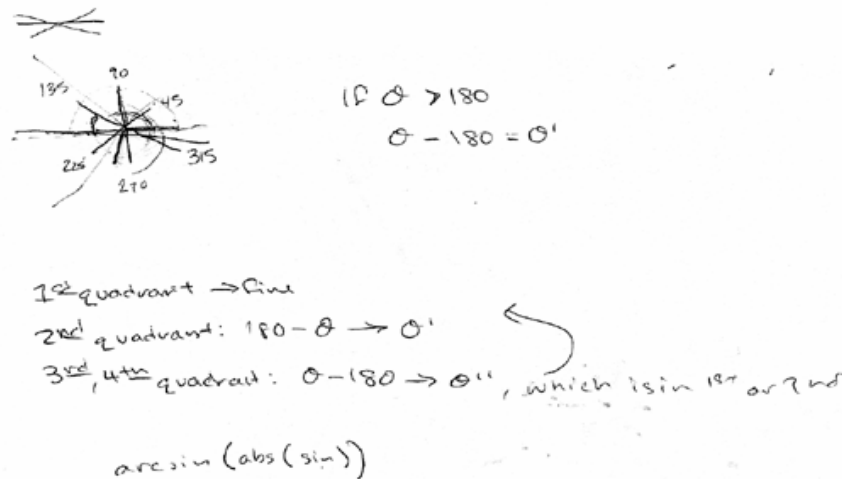 90
135
45
225
315
270
If θ > 180
θ - 180 = θ'
1st quadrant → fine
2nd quadrant: 180 - θ → θ'
3rd, 4th quadrant: θ - 180 → θ'', which is in 1st or 2nd
arcsin (abs (sin))